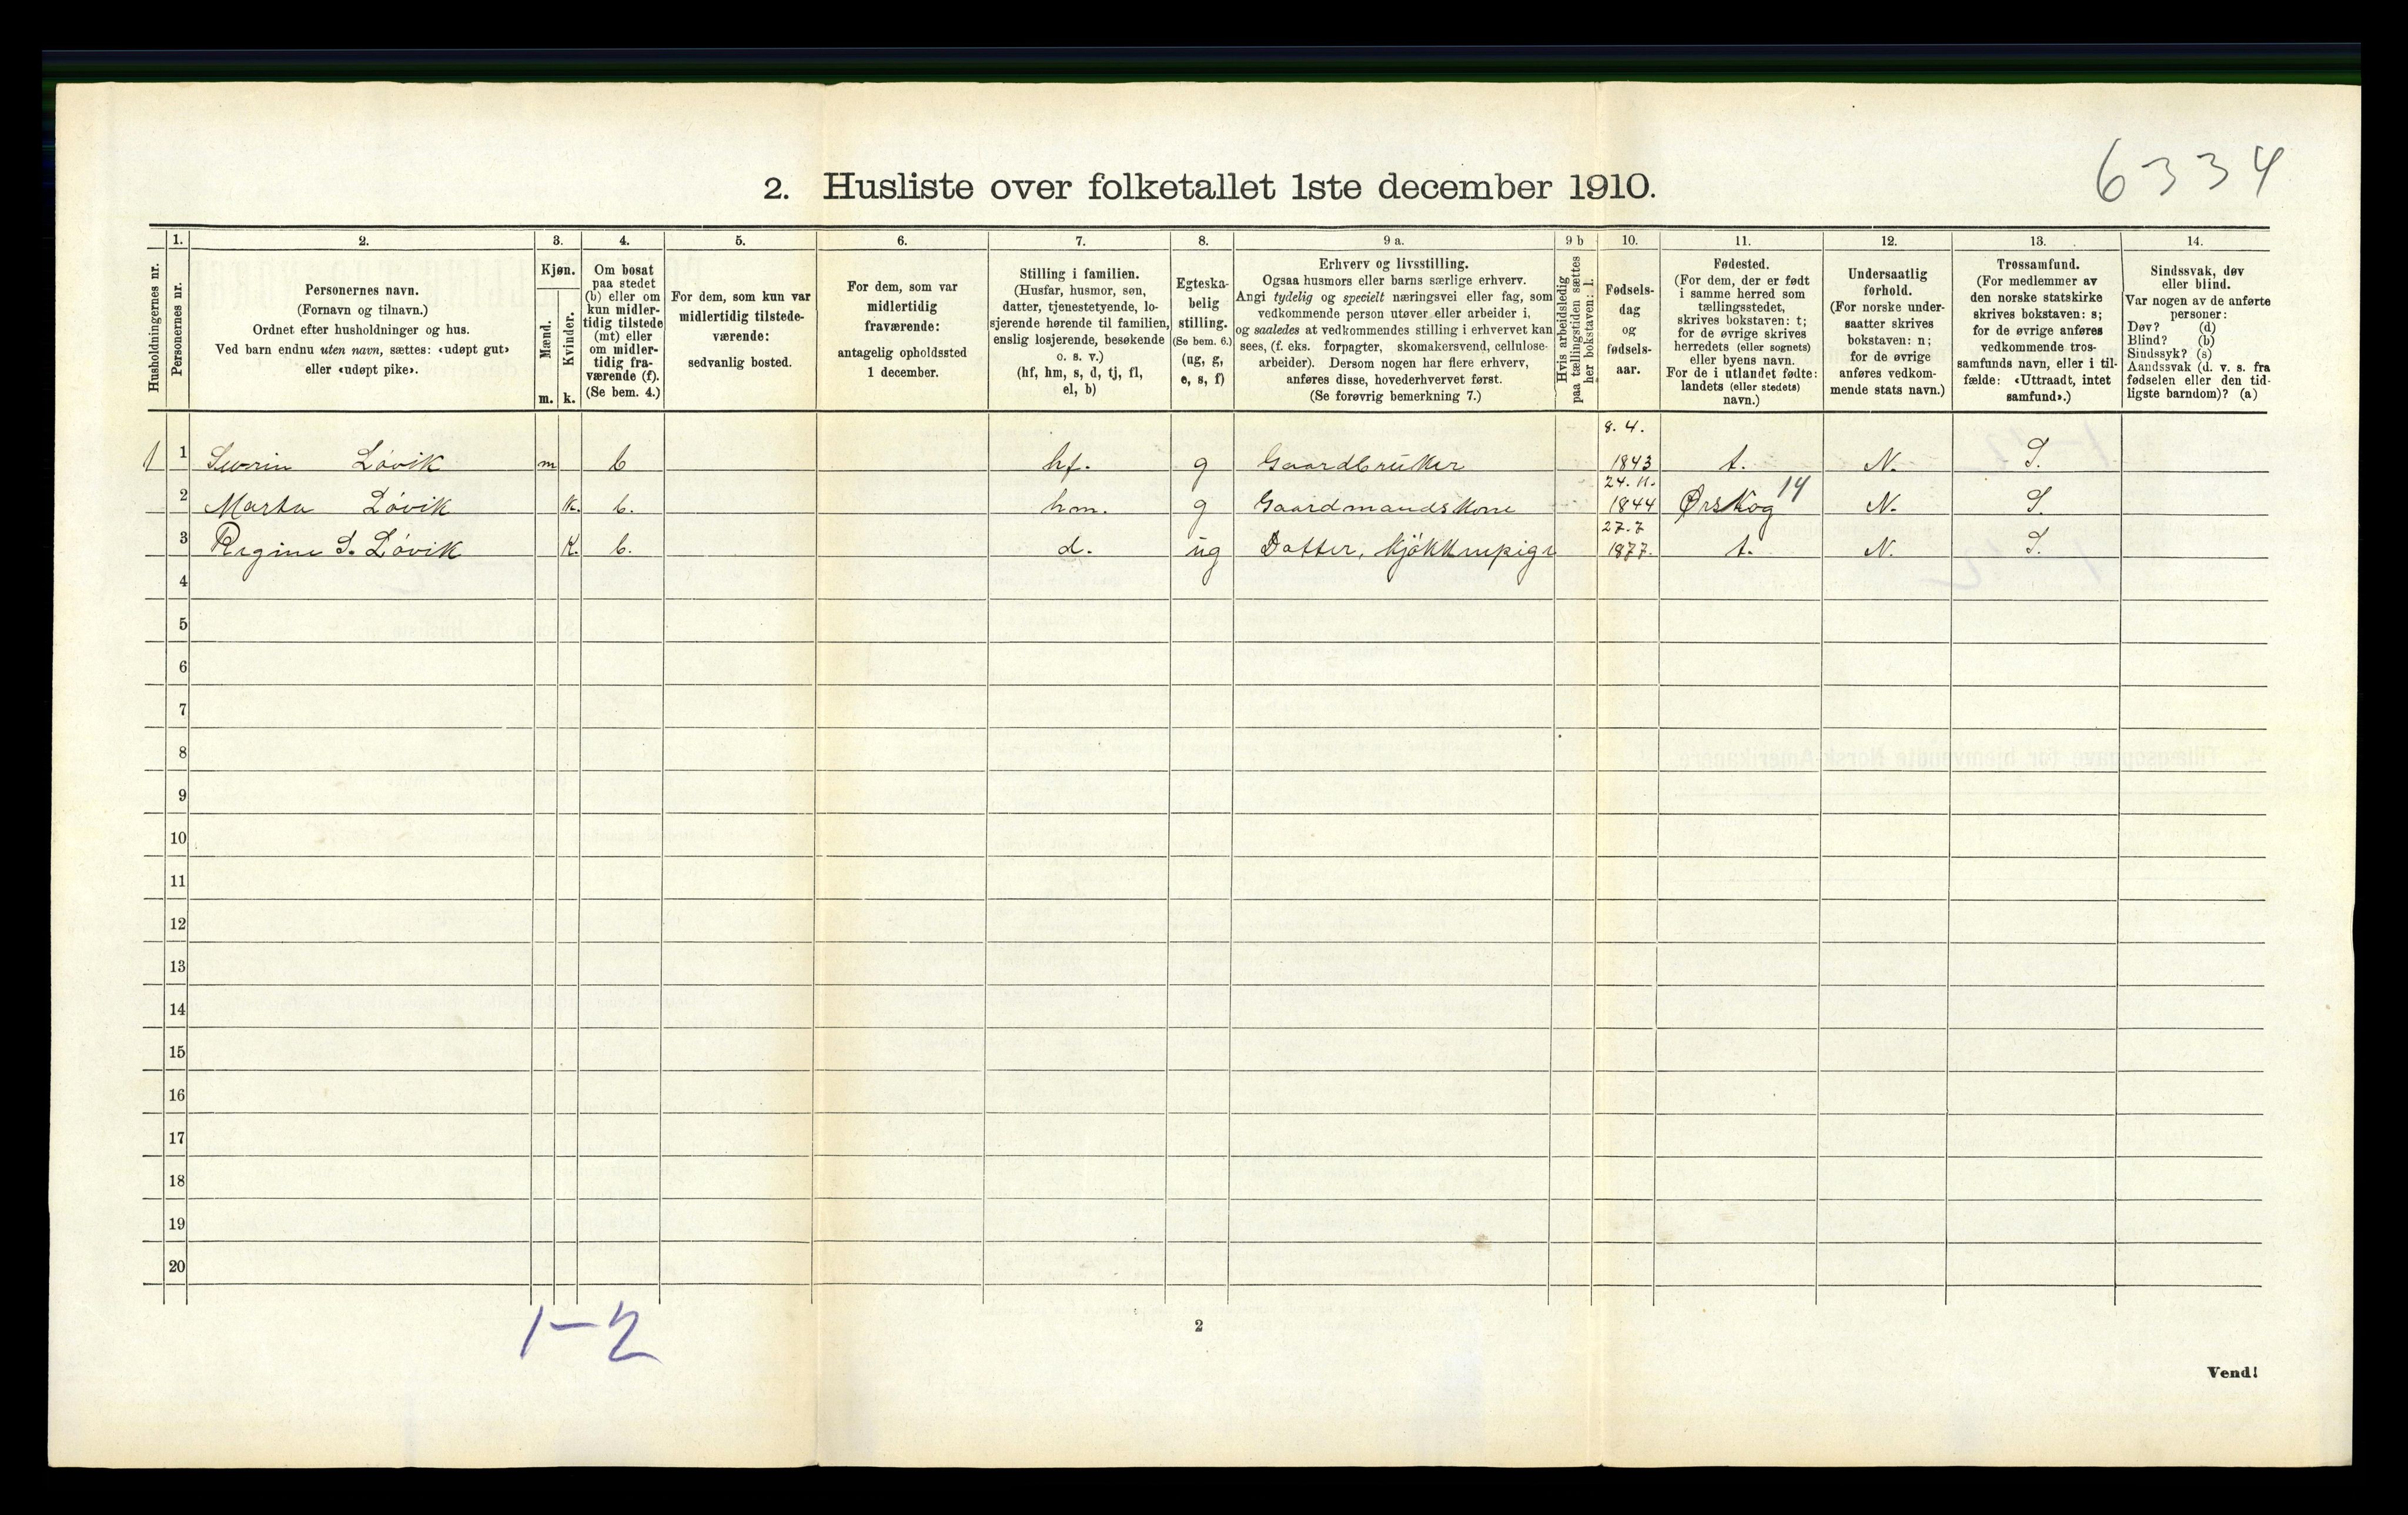 6334
2. Husliste over folketallet 1ste december 1910.
Husholdningernes nr.
1.
Personernes nr.
2.
Personernes navn.
(Fornavn og tilnavn.)
Ordnet efter husholdninger og hus.
Ved barn endnu uten navn, sættes: «udøpt gut»
eller «udøpt pike».
3.
Kjøn.
Mænd.
Kvinder.
m. k.
4.
Om bosat
paa stedet
(b) eller om
kun midler-
tidig tilstede
(mt) eller
om midler-
tidig fra-
værende (f).
(Se bem. 4.)
5.
For dem, som kun var
midlertidig tilstede-
værende:
sedvanlig bosted.
6.
For dem, som var
midlertidig
fraværende:
antagelig opholdssted
1 december.
7.
Stilling i familien.
(Husfar, husmor, søn,
datter, tjenestetyende, lo-
sjerende hørende til familien,
enslig losjerende, besøkende
o. s. v.)
(hf, hm, s, d, tj, fl,
el, b)
8.
Egteska-
belig
stilling.
(Se bem. 6.)
(ug, g,
e, s, f)
9 a.
Erhverv og livsstilling.
Ogsaa husmors eller barns særlige erhverv.
Angi tydelig og specielt næringsvei eller fag, som
vedkommende person utøver eller arbeider i,
og saaledes at vedkommendes stilling i erhvervet kan
sees, (f. eks. forpagter, skomakersvend, cellulose-
arbeider). Dersom nogen har flere erhverv,
anføres disse, hovederhvervet først.
(Se forøvrig bemerkning 7.)
9 b
Hvis arbeidsledig
paa tællingstiden sættes
her bokstaven: l.
10.
Fødsels-
dag
og
fødsels-
aar.
11.
Fødested.
(For dem, der er født
i samme herred som
tællingsstedet,
skrives bokstaven: t;
for de øvrige skrives
herredets (eller sognets)
eller byens navn.
For de i utlandet fødte:
landets (eller stedets)
navn.)
12.
Undersaatlig
forhold.
(For norske under-
saatter skrives
bokstaven: n;
for de øvrige
anføres vedkom-
mende stats navn.)
13.
Trossamfund.
(For medlemmer av
den norske statskirke
skrives bokstaven: s;
for de øvrige anføres
vedkommende tros-
samfunds navn, eller i til-
fælde: «Uttraadt, intet
samfund».)
14.
Sindssvak, døv
eller blind.
Var nogen av de anførte
personer:
Døv? (d)
Blind? (b)
Sindssyk? (s)
Aandssvak (d. v. s. fra
fødselen eller den tid-
ligste barndom)? (a)
8. 4.
1 1 Severin Løvik m b hf. g Gaardbruker 1843 t. N. S.
24. 11.
2 Marta Løvik k. b. hm. g Gaardmandskone 1844 Ørskog 14 N. S.
27. 7
3 Regine S. Løvik K. b. d. ug Datter, kjøkkenpige 1877. t. N. S.
4
5
6
7
8
9
10
11
12
13
14
15
16
17
18
19
20
1-2
2
Vend!